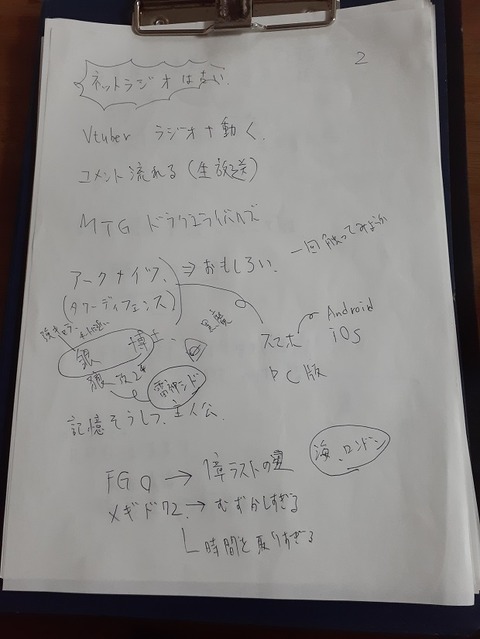 2
ネットラジオは古い
Vtuber ラジオ+動く
コメント流れる(生放送)
MTG ドラクエライバルズ
一回触ってみようか
アークナイツ ⇒おもしろい
(タワーディフェンス)
Android
スマホ
iOS
PC版
銀 博士
記憶そうしつ 主人公
海、ロンドン
FGO → 1章ラストの
メギド72 → むずかしすぎる
時間を取りすぎる